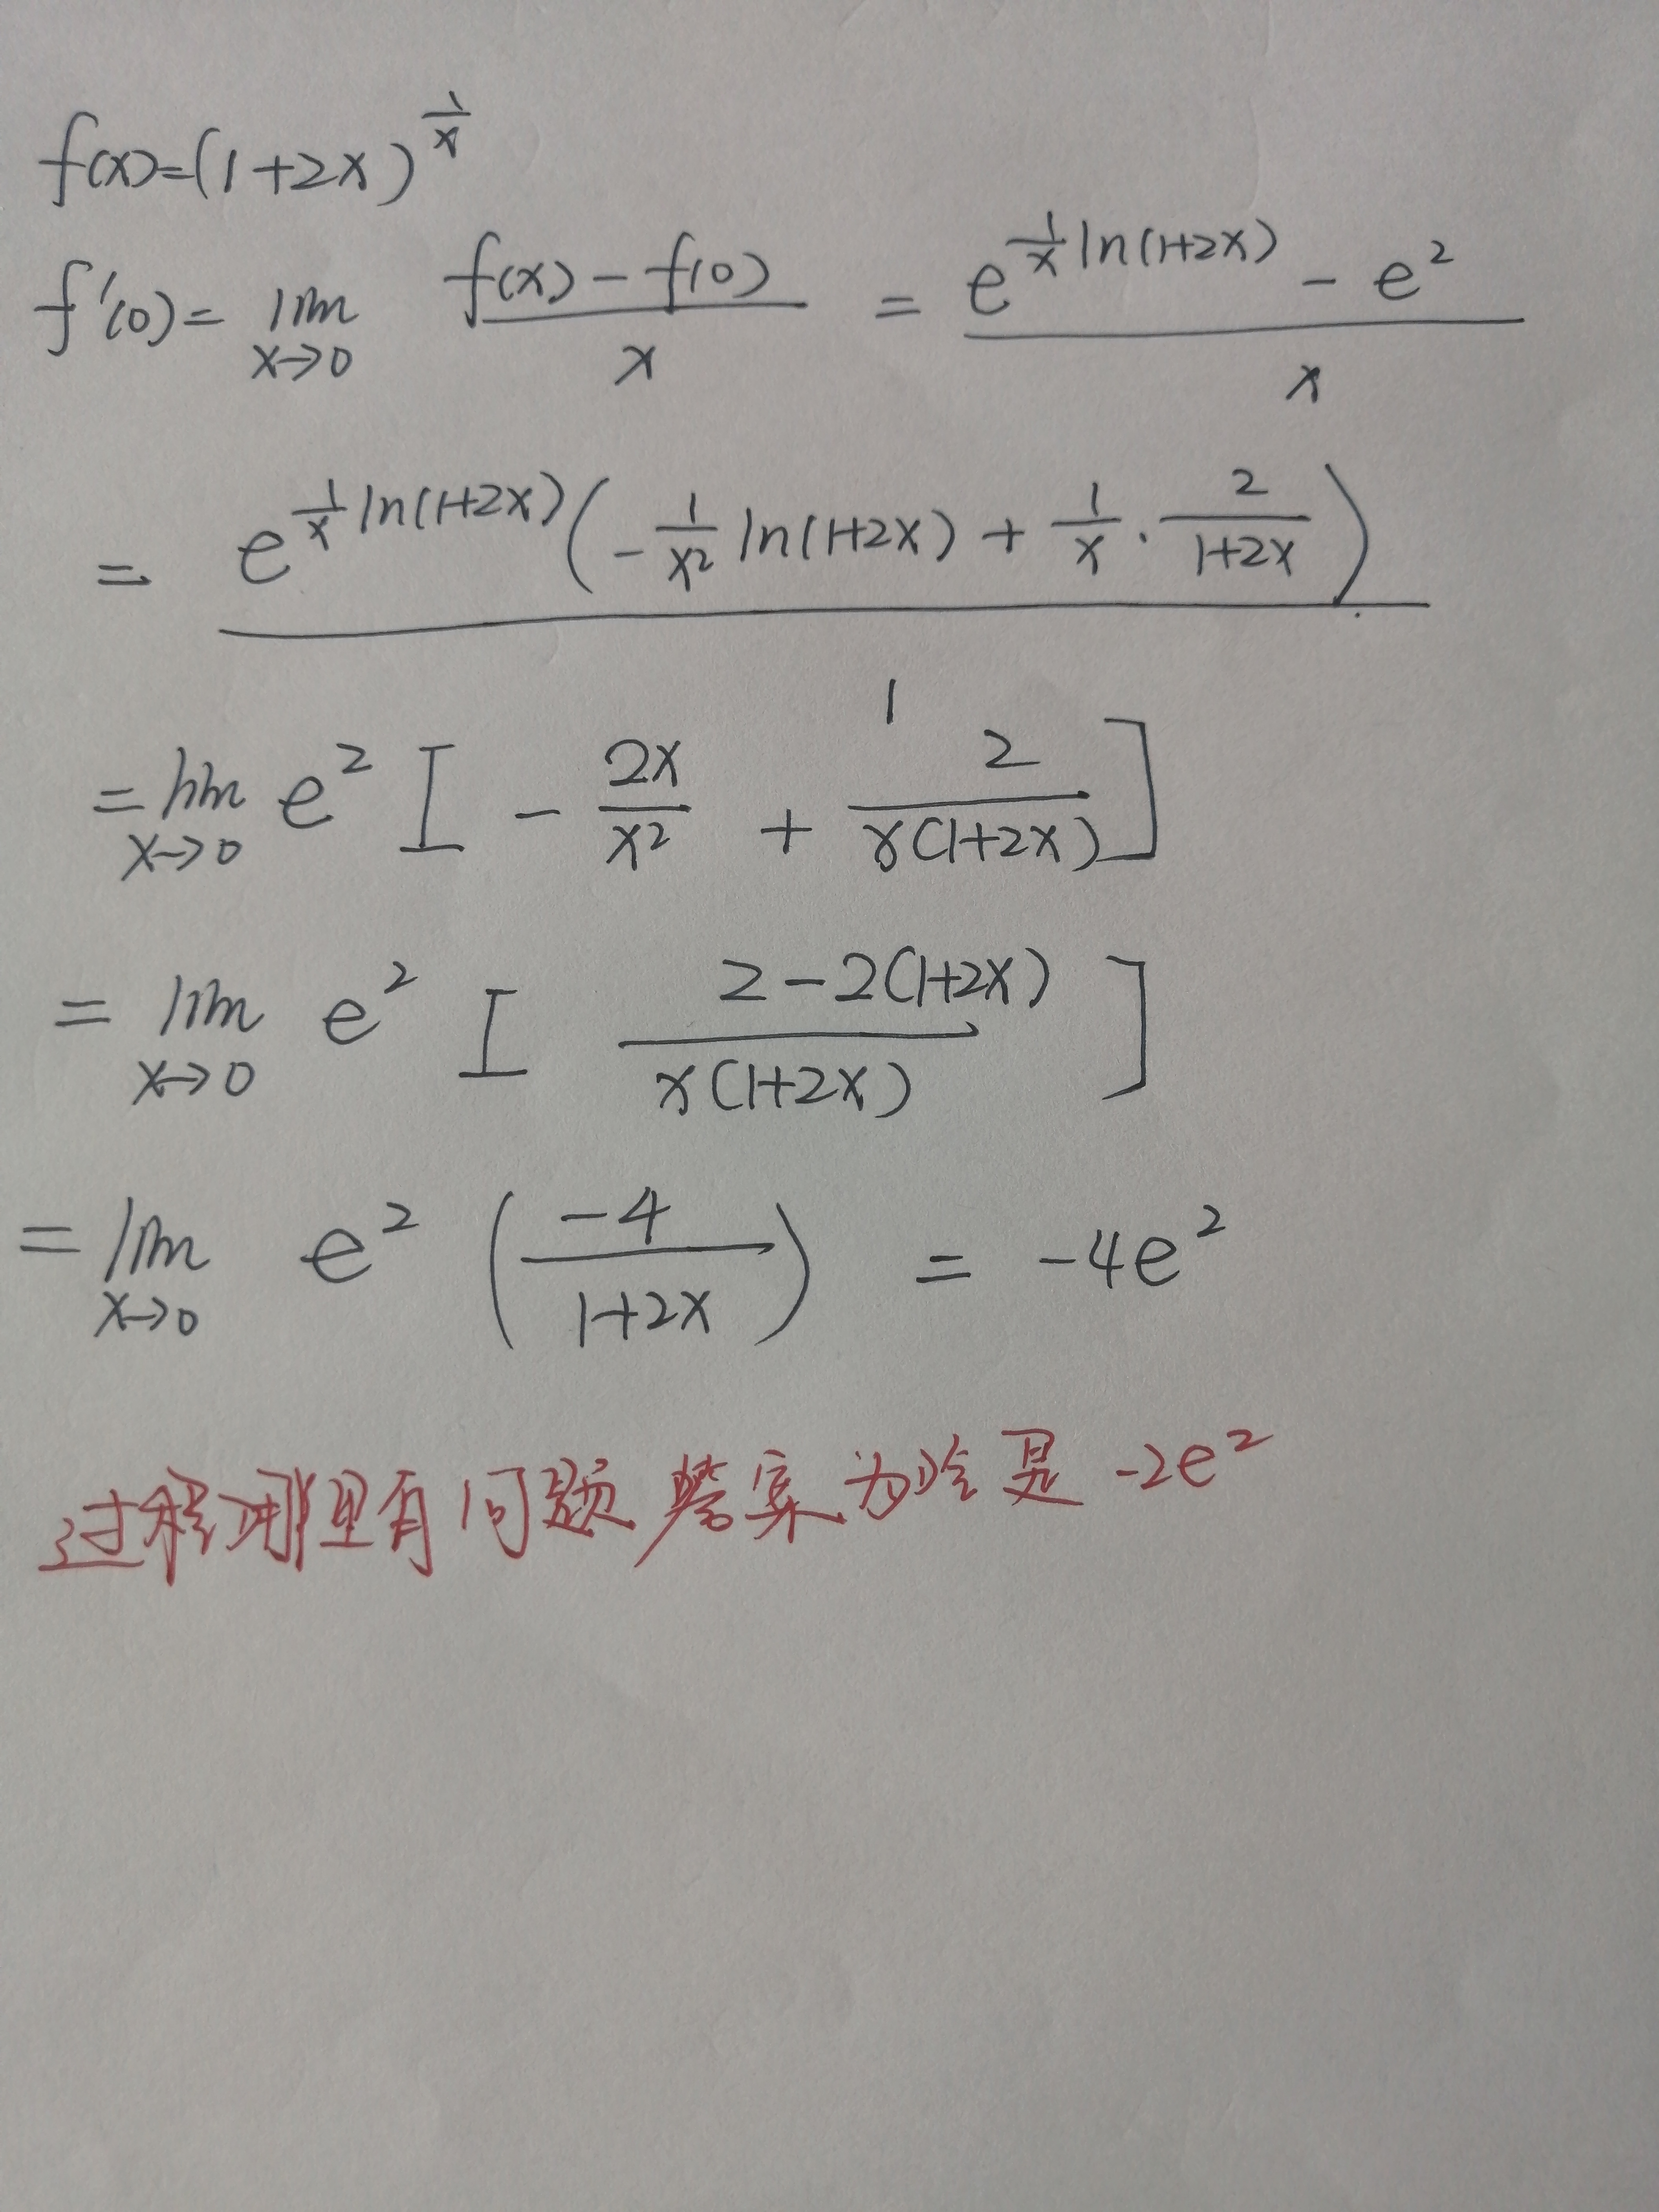 f(x)=(1+2x)^{\frac{1}{x}}
f'(0)= \lim_{x→0} \frac{f(x)-f(0)}{x} = \frac{e^{\frac{1}{x}ln(1+2x)} - e^2}{x}
= \frac{e^{\frac{1}{x}ln(1+2x)}(-\frac{1}{x^2}ln(1+2x)+\frac{1}{x}·\frac{2}{1+2x})}{1}
= \lim_{x→0} e^2 [-\frac{2x}{x^2} + \frac{2}{x(1+2x)}]
= \lim_{x→0} e^2 [\frac{2-2(1+2x)}{x(1+2x)}]
= \lim_{x→0} e^2 (\frac{-4}{1+2x}) = -4e^2
过程哪里有问题 答案为啥是 -2e^2